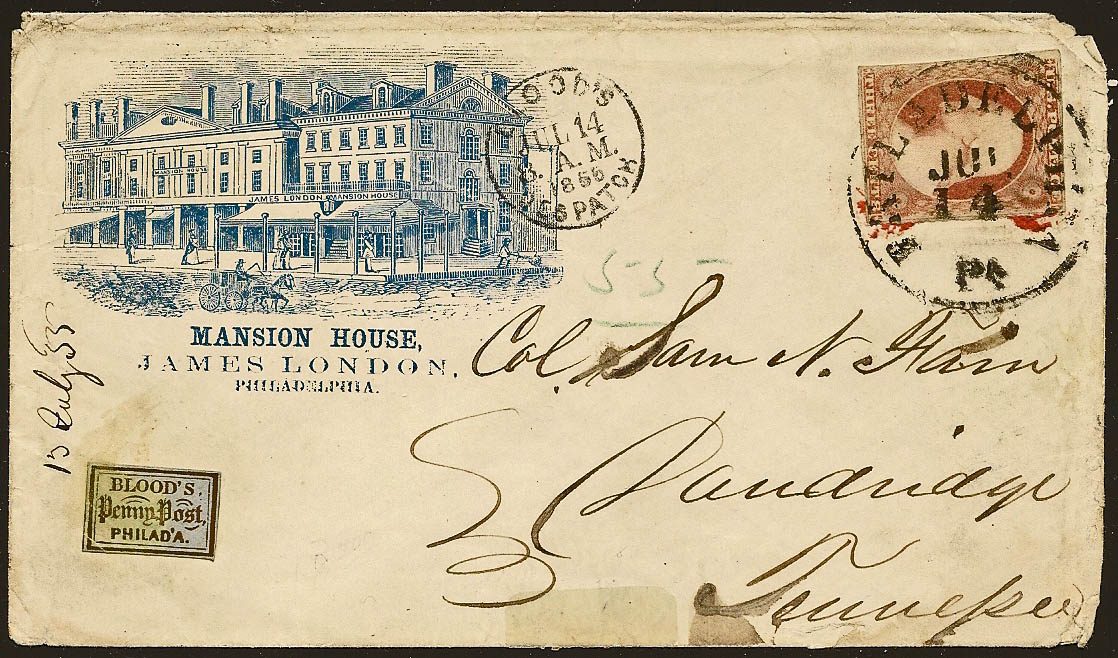 MANSION HOUSE
JAMES LONDON MANSION HOUSE
MANSION HOUSE,
JAMES LONDON,
PHILADELPHIA.
BLOOD'S
JUL 14
A.M.
1855
DESPATCH
PHILADELPHIA
JUL
14
Pa
55
Col. Sam N. Fain
Dandridge
Tennessee
13 July 55
BLOOD'S
Penny Post,
PHILAD'A.